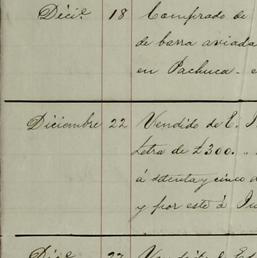 Décie 18 Comprado de
de barra aviada
en Pachuca - e
Diciembre 22 Vendido de E. I
Letra de £300. . .
á setenta y cinco d
y por este á Ju